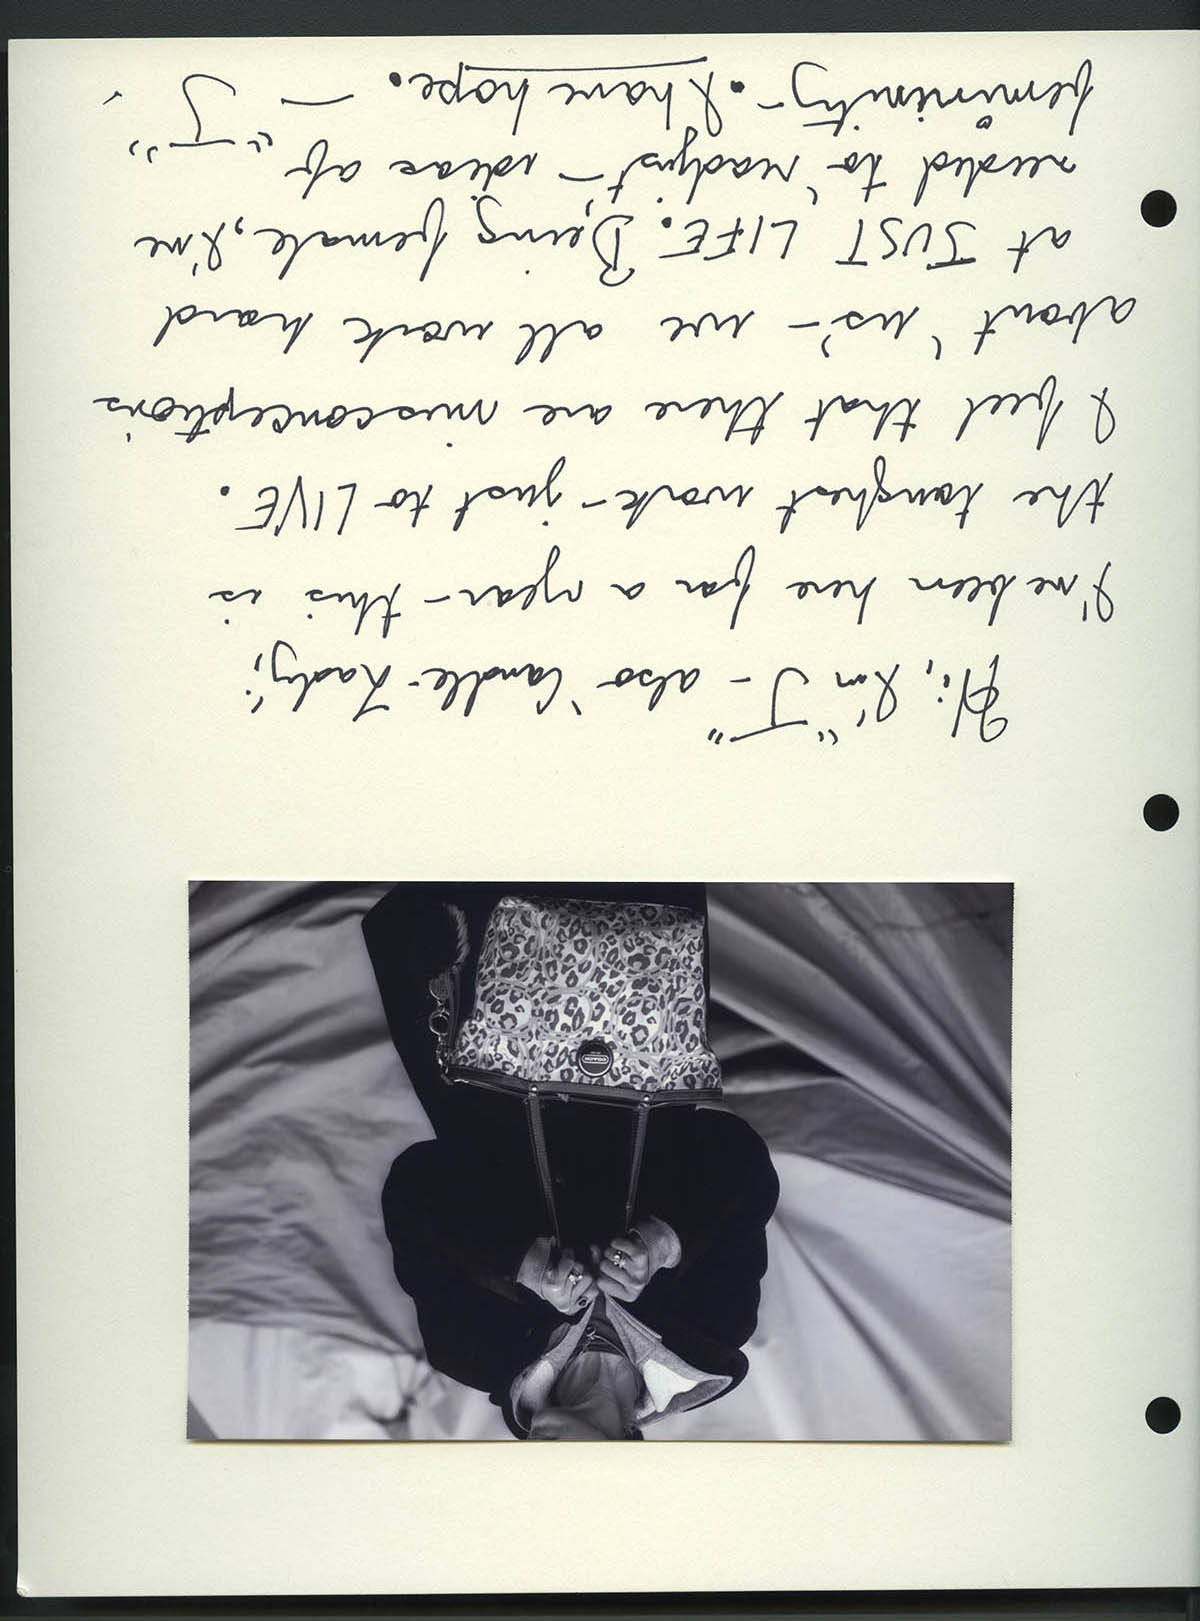 COACH
Hi, I'm "J" - also 'Candle-Lady',
I've been here for a year - this is
the toughest work - just to LIVE.
I feel that there are misconceptions
about 'us' - we all work hard
at JUST LIFE. Being female, I've
needed to 'readjust' - ideas of
femininity - I have hope. - "J"